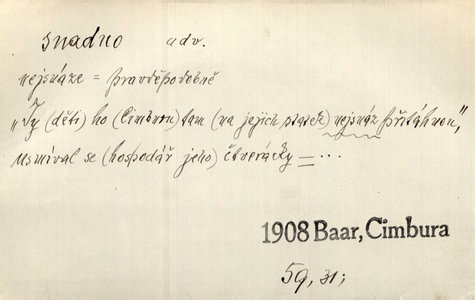 snadno adv.
nejsnáze = pravděpodobně
„Ty (děti) ho (Cimburu) tam (na jejich statek) nejsnáz přitáhnou,"
usmíval se (hospodář jeho) čtverácky – ...
1908 Baar, Cimbura
59, 31;